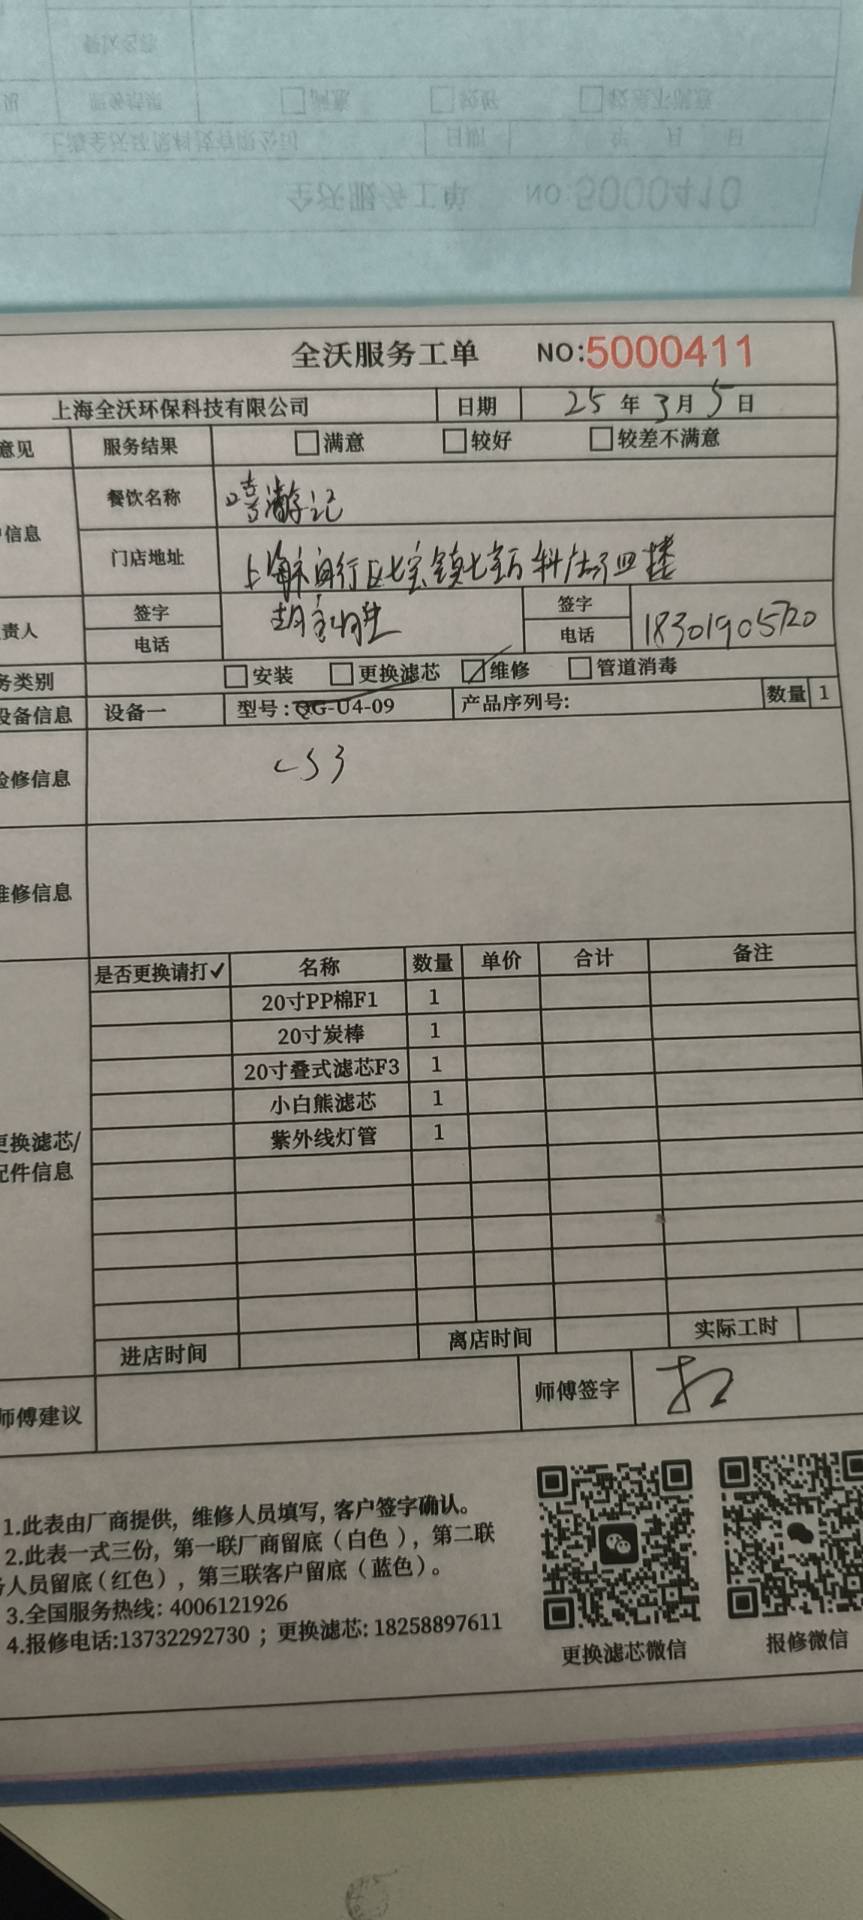 全沃服务工单 NO:5000410
全沃服务工单 NO:5000411
上海全沃环保科技有限公司 日期 25年3月5日
意见 服务结果 满意 较好 较差不满意
信息 餐饮名称 嘻游记
门店地址 上海市闵行区七宝镇七宝万科广场四楼
责人 签字 签字
电话 电话 18301905720
务类别 安装 更换滤芯 维修 管道消毒
设备信息 设备一 型号:QG-U4-09 产品序列号: 数量 1
检修信息
维修信息
是否更换请打✓ 名称 数量 单价 合计 备注
20寸PP棉F1 1
20寸炭棒 1
20寸叠式滤芯F3 1
小白熊滤芯 1
紫外线灯管 1
更换滤芯/
配件信息
进店时间 离店时间 实际工时
师傅建议 师傅签字
1.此表由厂商提供, 维修人员填写, 客户签字确认。
2.此表一式三份, 第一联厂商留底(白色), 第二联
务人员留底(红色), 第三联客户留底(蓝色)。
3.全国服务热线: 4006121926
4.报修电话:13732292730 ; 更换滤芯: 18258897611
更换滤芯微信 报修微信